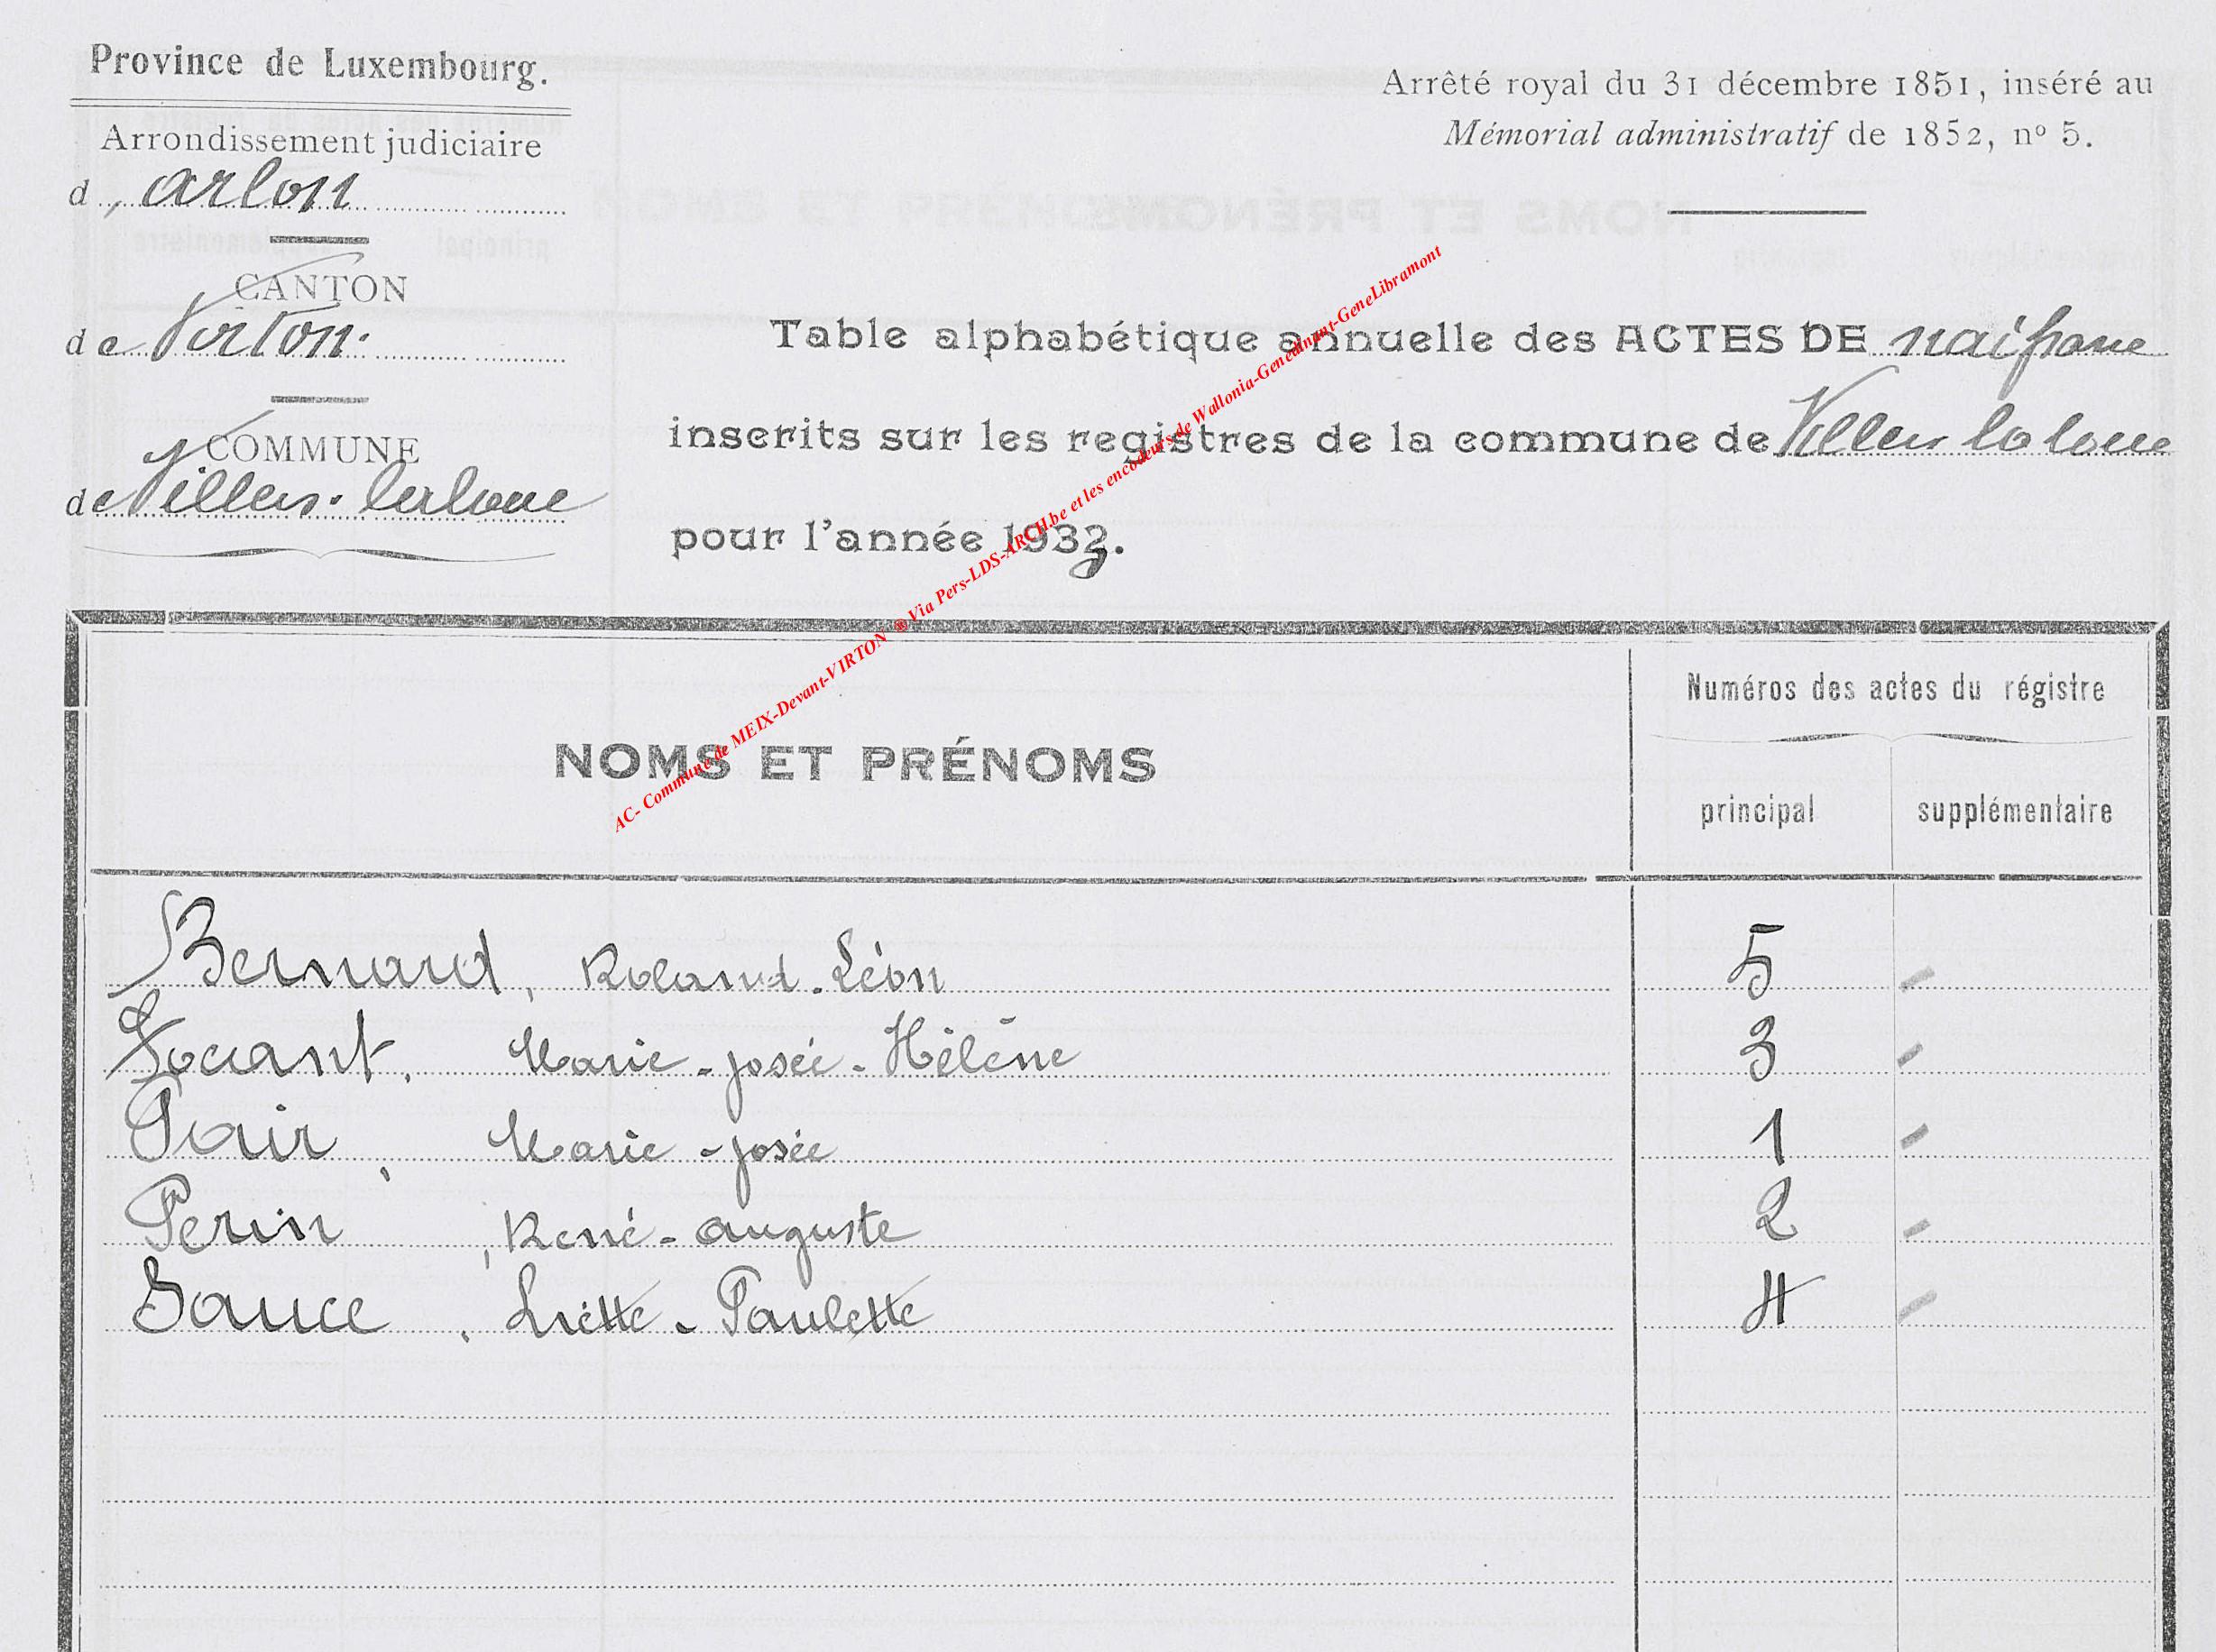 Province de Luxembourg.
Arrondissement judiciaire
d, arlon
CANTON
de Virton.
COMMUNE
de Villers-laloue
Arrêté royal du 31 décembre 1851, inséré au
Mémorial administratif de 1852, nº 5.
Table alphabétique annuelle des ACTES DE naissance
inscrits sur les registres de la commune de Villers la loue
pour l'année 1933.
AC- Commune de MEIX-Devant-VIRTON ®Via Pers-LDS-ARCH.be et les encodeurs de Wallonia-Genedinant-GeneLibramont
NOMS ET PRÉNOMS
Numéros des actes du régistre
principal
supplémentaire
Bernard, Roland-Léon 5 -
Focant, Marie-josée-Hélène 3 -
Pair, Marie-josée 1 -
Perin, René-auguste 2 -
Sauce, Liette-Paulette 4 -